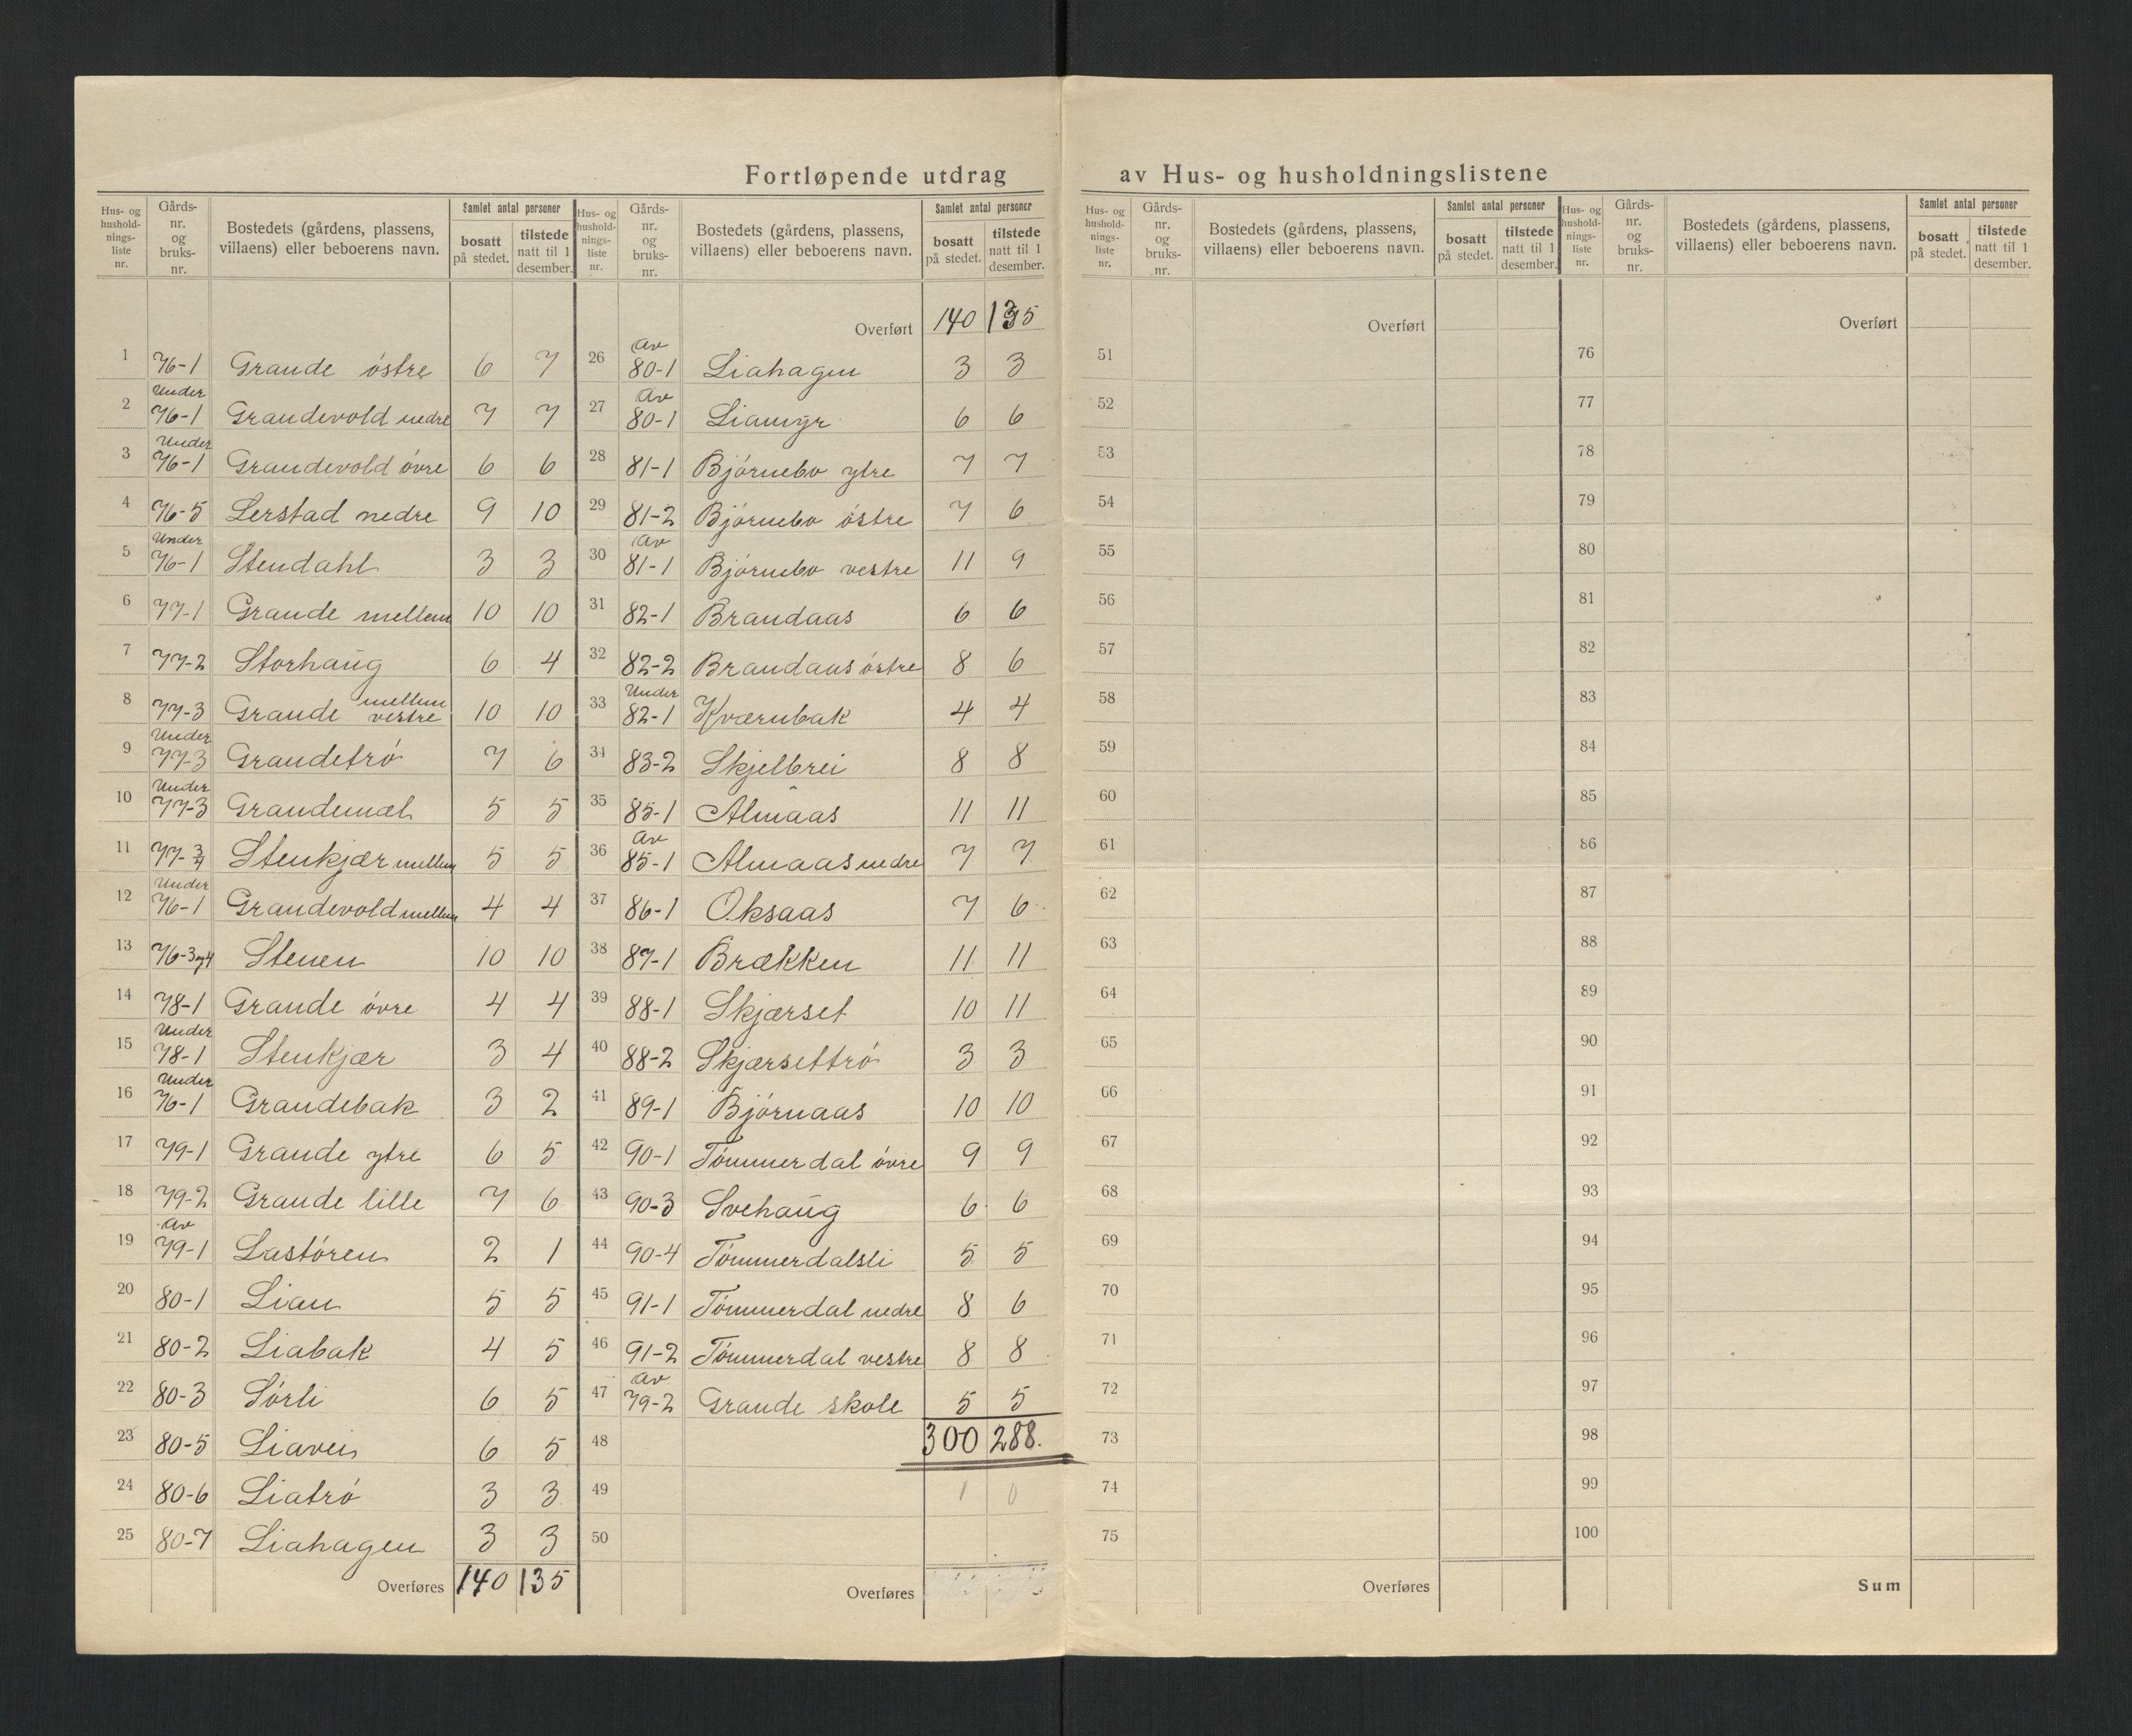 Fortløpende utdrag av Hus- og husholdningslistene
Hus- og hushold- nings- liste nr. | Gårds- nr. og bruks- nr. | Bostedets (gårdens, plassens, villaens) eller beboerens navn. | Samlet antal personer | bosatt på stedet. | tilstede natt til 1 desember.
1 76-1 Grande östre 6 7
2 Under 76-1 Grandevold nedre 7 7
3 Under 76-1 Grandevold övre 6 6
4 76-5 Lerstad nedre 9 10
5 Under 76-1 Stendahl 3 3
6 77-1 Grande mellem 10 10
7 77-2 Storhaug 6 4
8 77-3 Grande mellem vestre 10 10
9 Under 77-3 Grandetrö 7 6
10 Under 77-3 Grandemæl 5 5
11 77-3/4 Stenkjær mellem 5 5
12 Under 76-1 Grandevold mellem 4 4
13 76-3og4 Stenen 10 10
14 78-1 Grande övre 4 4
15 Under 78-1 Stenkjær 3 4
16 Under 76-1 Grandebak 3 2
17 79-1 Grande ytre 6 5
18 79-2 Grande lille 7 6
19 Av 79-1 Lastören 2 1
20 80-1 Lian 5 5
21 80-2 Liabak 4 5
22 80-3 Sörli 6 5
23 80-5 Liavei 6 5
24 80-6 Liatrö 3 3
25 80-7 Liahagen 3 3
Overføres 140 135
Hus- og hushold- nings- liste nr. | Gårds- nr. og bruks- nr. | Bostedets (gårdens, plassens, villaens) eller beboerens navn. | Samlet antal personer | bosatt på stedet. | tilstede natt til 1 desember.
Overført 140 135
26 Av 80-1 Liahagen 3 3
27 Av 80-1 Liamyr 6 6
28 81-1 Björnebo ytre 7 7
29 81-2 Björnebo östre 7 6
30 Av 81-1 Björnebo vestre 11 9
31 82-1 Brandaas 6 6
32 82-2 Brandaas östre 8 6
33 Under 82-1 Kværnbak 4 4
34 83-2 Skjelbrei 8 8
35 85-1 Almaas 11 11
36 Av 85-1 Almaas nedre 7 7
37 86-1 Oksaas 7 6
38 87-1 Brækken 11 11
39 88-1 Skjærset 10 11
40 88-2 Skjærsettrö 3 3
41 89-1 Björnaas 10 10
42 90-1 Tömmerdal övre 9 9
43 90-3 Svehaug 6 6
44 90-4 Tömmerdalsli 5 5
45 91-1 Tömmerdal nedre 8 6
46 91-2 Tömmerdal vestre 8 8
47 Av 79-2 Grande skole 5 5
48 300 288.
49 1 0
50
Overføres
Hus- og hushold- nings- liste nr. | Gårds- nr. og bruks- nr. | Bostedets (gårdens, plassens, villaens) eller beboerens navn. | Samlet antal personer | bosatt på stedet. | tilstede natt til 1 desember.
Overført
51
52
53
54
55
56
57
58
59
60
61
62
63
64
65
66
67
68
69
70
71
72
73
74
75
Overføres
Hus- og hushold- nings- liste nr. | Gårds- nr. og bruks- nr. | Bostedets (gårdens, plassens, villaens) eller beboerens navn. | Samlet antal personer | bosatt på stedet. | tilstede natt til 1 desember.
Overført
76
77
78
79
80
81
82
83
84
85
86
87
88
89
90
91
92
93
94
95
96
97
98
99
100
Sum